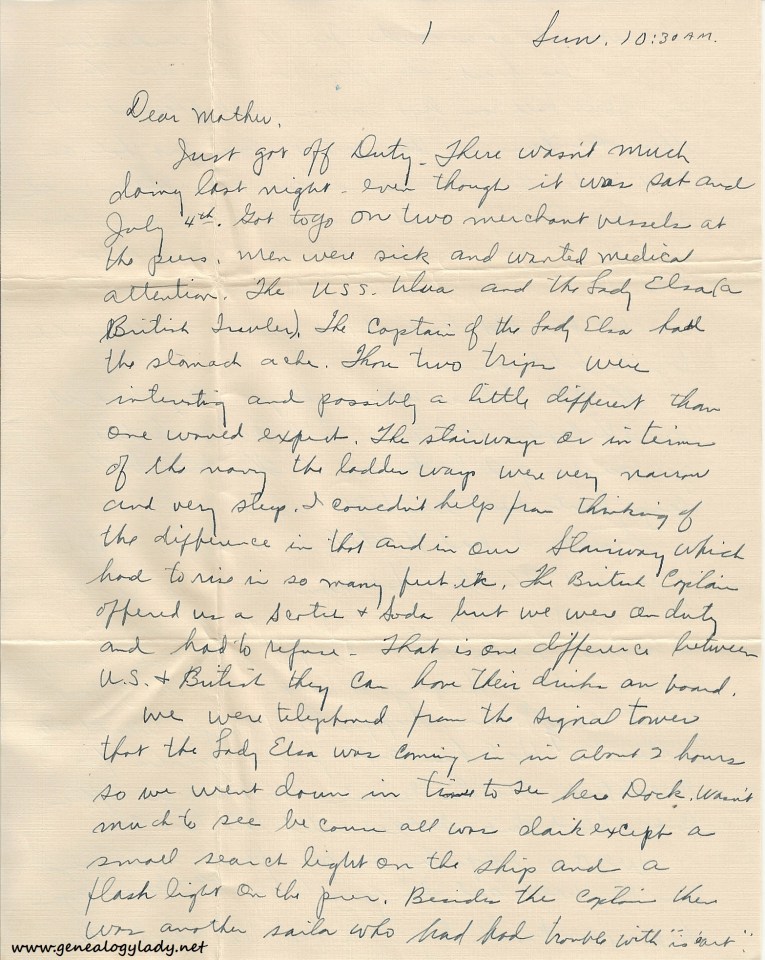 1 Sun. 10:30 AM.
Dear Mother,
Just got off Duty. There wasn't much
doing last night - even though it was Sat and
July 4th. Got to go on two merchant vessels at
the piers. Men were sick and wanted medical
attention. The U.S.S. Ulua and the Lady Elsa (a
British Trawler). The Captain of the Lady Elsa had
the stomach ache. Those two trips were
interesting and possibly a little different than
one would expect. The stairways or in terms
of the navy the ladder ways were very narrow
and very steep. I couldn't help from thinking of
the difference in that and in our Stairway which
had to rise in so many feet etc. The British Captain
offered us a Scotch + Soda but we were on duty
and had to refuse - That is one difference between
U.S. + British they can have their drinks on board.
We were telephoned from the signal tower
that the Lady Elsa was coming in in about 2 hours
so we went down in time to see here Dock. Wasn't
much to see because all was dark except a
small search light on the ship and a
flash light on the pier. Besides the Captain there
was another sailor who had had trouble with "is 'eart".
www.genealogylady.net